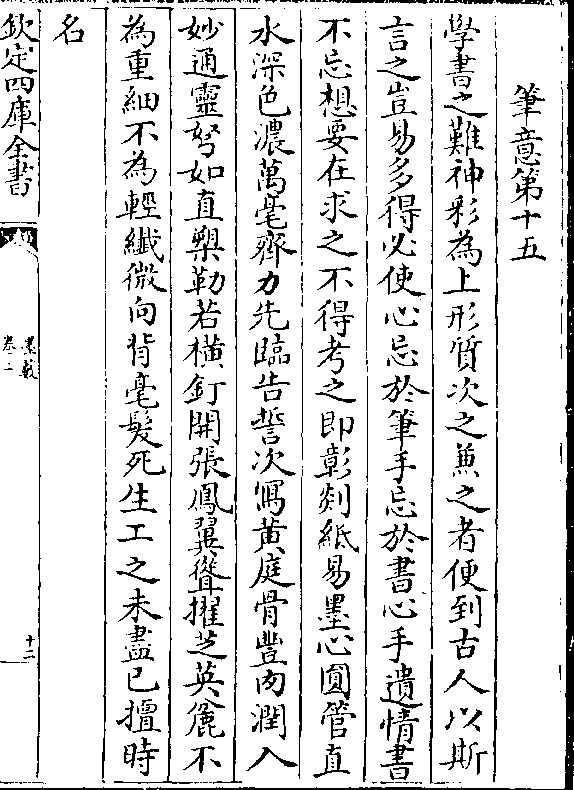 筆意第十五
學書之難神彩為上形質次之兼之者便到古人以斯
言之豈易多得必使心忘於筆手忘於書心手遺情書
不忘想要在求之不得考之即彰剡紙易墨心圓管直
水深色濃萬毫齊力先臨告誓次寫黄庭骨豐肉潤入
妙通靈努如直槊勒若橫釘開張鳳翼聳擢芝英麄不
為重細不為輕纎微向背毫髮死生工之未盡已擅時
名
欽定四庫全書
墨藪
卷二
十二